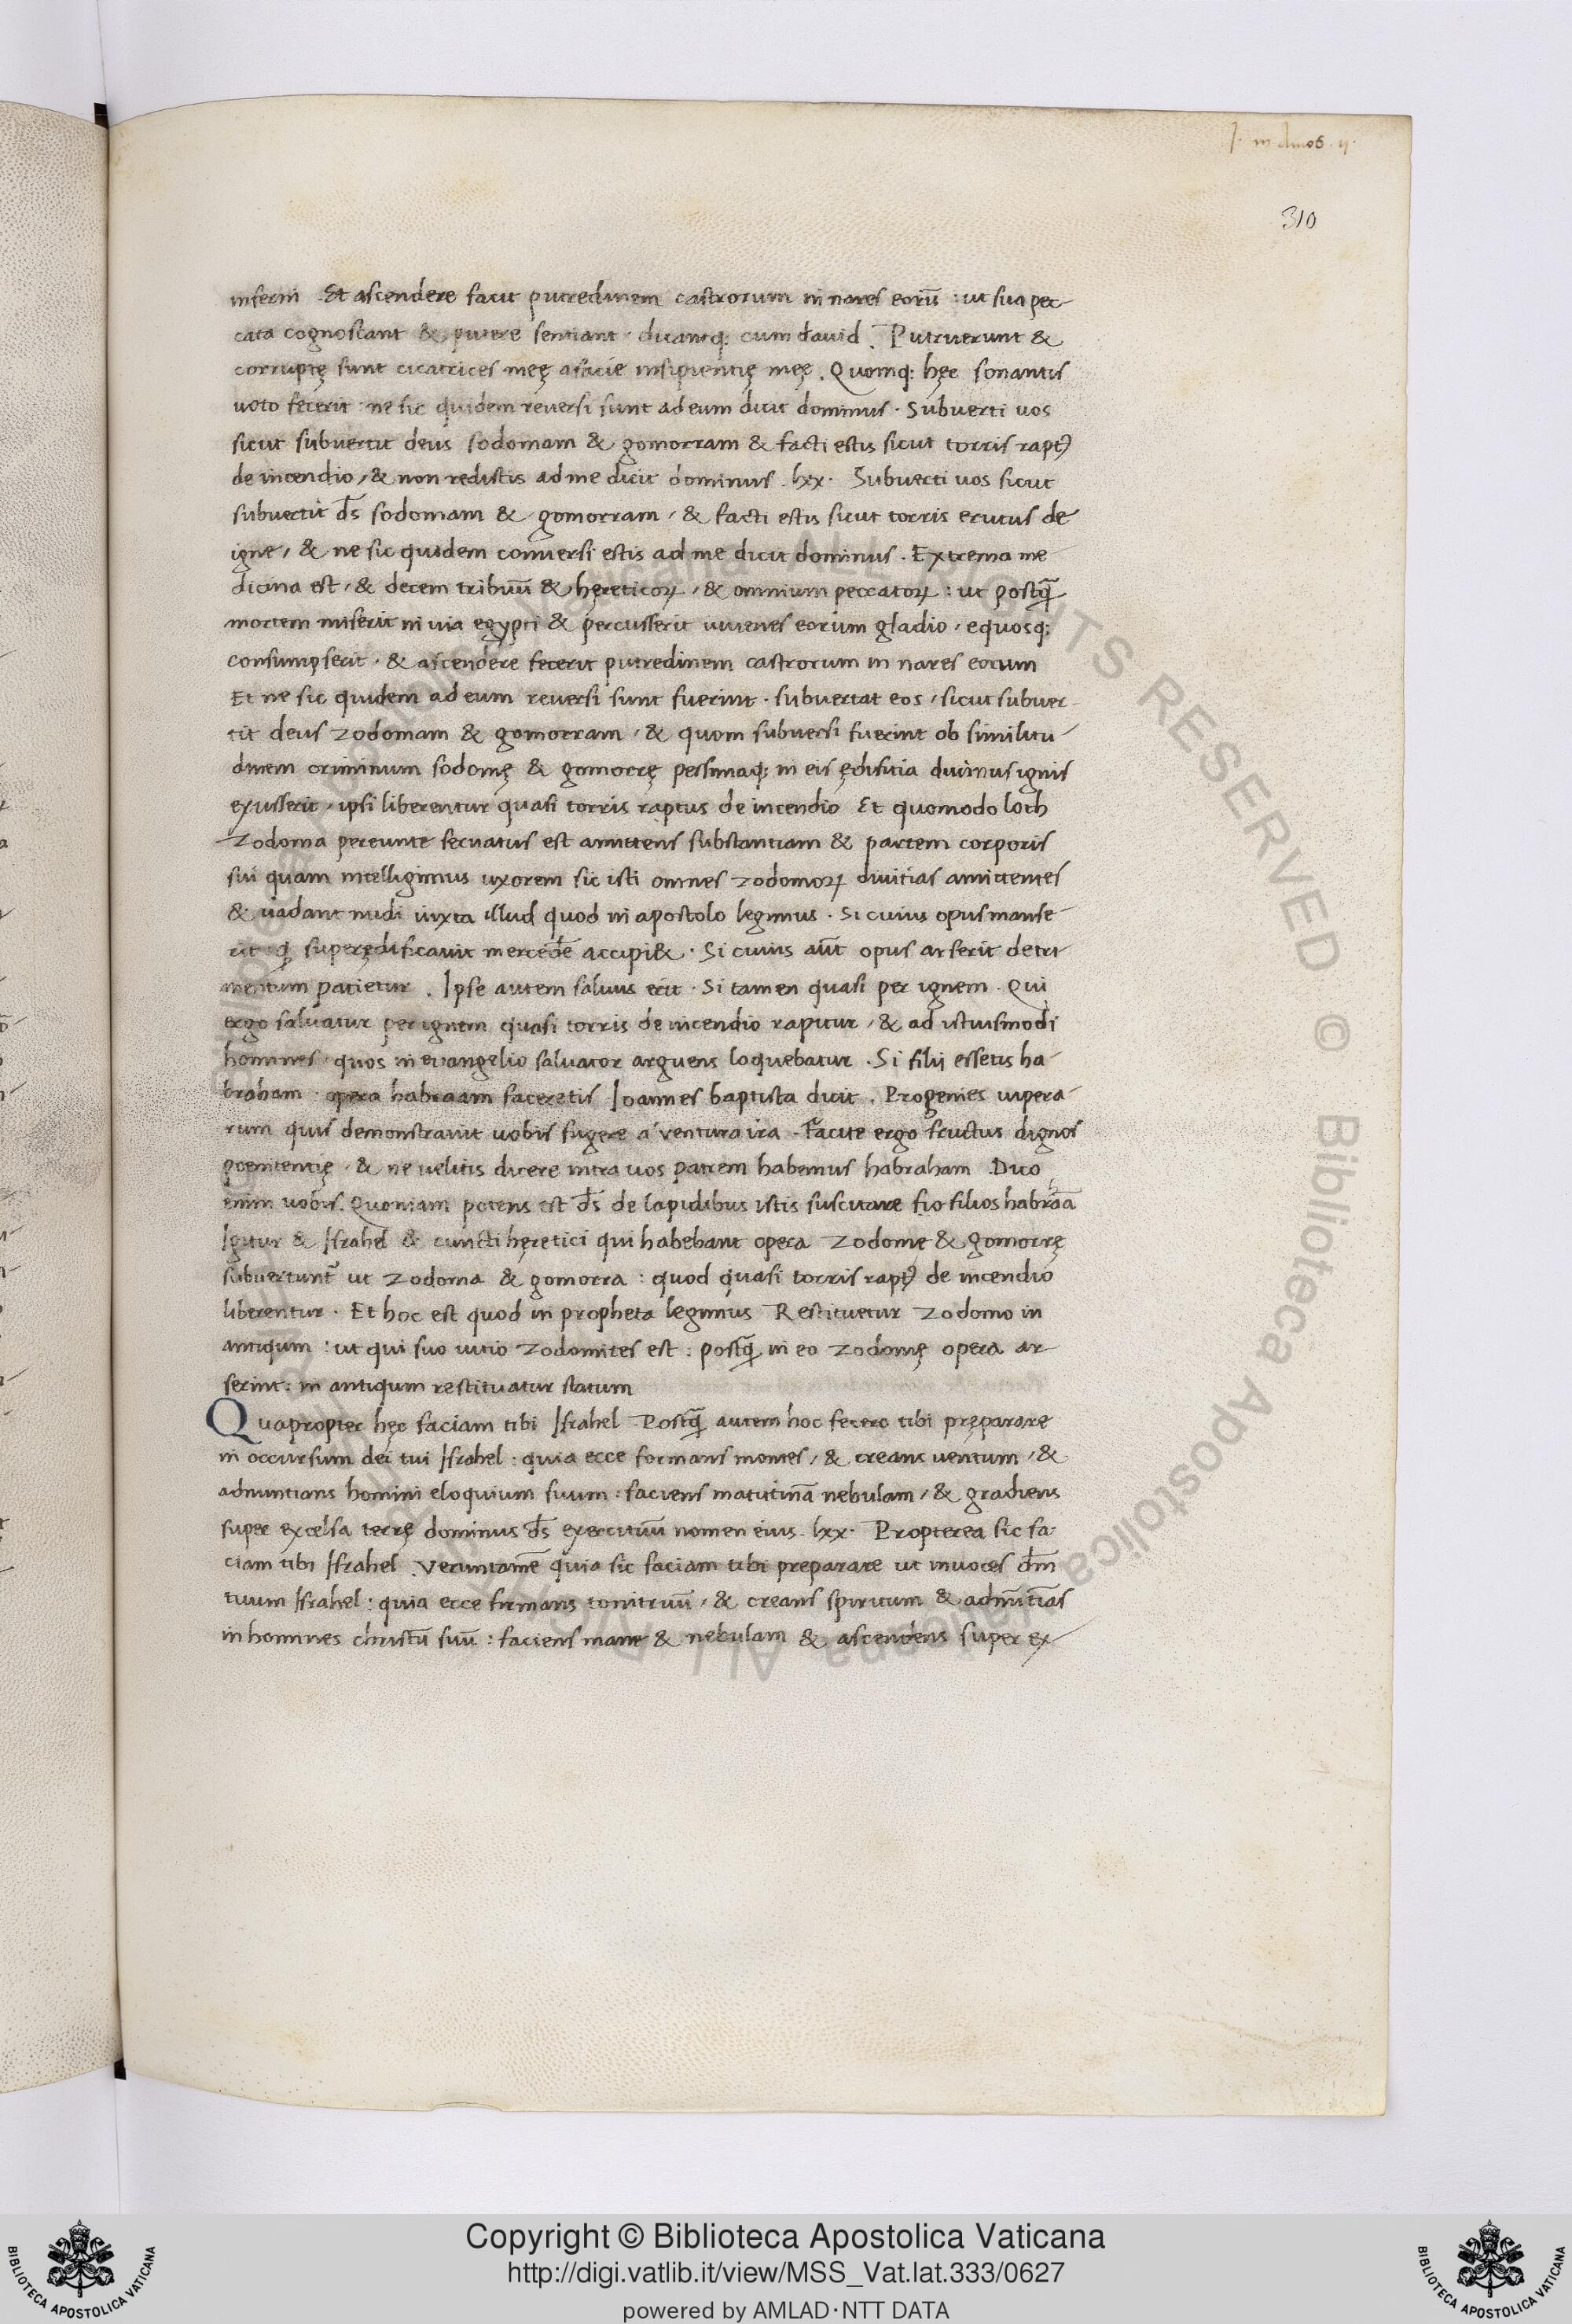 J. in Amos. ij.
310
inferni . Et ascendere facit putredinem castrorum in nares eorū : ut sua pec-
cata cognoscant & putere sentiant . dicantq; cum david . Putruerunt &
corruptę sunt cicatrices meę afacie insipientię meę . Quomq; hęc sonantis
uoto fecerit ne sic quidem reuersi sunt ad eum dicit dominus . Subuerti uos
sicut subuertit deus sodomam & gomorram & facti estis sicut torris rapt⁹
de incendio / & non redistis ad me dicit dominus . lxx . Subuerti uos sicut
subuertit d̄s sodomam & gomorram / & facti estis sicut torris erutus de
igne / & ne sic quidem conuersi estis ad me dicit dominus . Extrema me-
dicina est / & decem tribuū & hęreticoꝝ / & omnium peccatoꝝ : ut postq̄
mortem miserit in uia egypti & percusserit iuuenes eorum gladio / equosq;
consumpserit / & ascendere fecerit putredinem castrorum in nares eorum
Et ne sic quidem ad eum reuersi sunt fuerint . subuertat eos / sicut subuer-
tit deus zodomam & gomorram / & quom subuersi fuerint ob similitu-
dinem criminum sodomę & gomorrę pessimaq; in eis ędificia diuinus ignis
exusserit / ipsi liberentur quasi torris raptus de incendio Et quomodo loth
zodoma pereunte seruatus est amittens substantiam & partem corporis
sui quam intelligimus uxorem sic isti omnes zodomoꝝ diuitias amittentes
& uadant nudi iuxta illud quod in apostolo legimus . Si cuius opus manse-
rit q̄ superędificauit mercedē accipi& . Si cuius aūt opus arserit detri
mentum patietur . Ipse autem saluus erit . Si tamen quasi per ignem . Qui
ergo saluatur per ignem quasi torris de incendio rapitur / & ad istiusmodi
homines quos in euangelio saluator arguens loquebatur . Si filij essetis ha-
braham opera habraam faceretis Ioannes baptista dicit . Progenies uipera-
rum quis demonstrauit uobis fugere a uentura ira . Facite ergo fructus dignos
poenitentię . & ne uelitis dicere intra uos patrem habemus habraham . Dico
enim uobis . Quoniam potens est d̄s de lapidibus istis suscitare fio filios habraā
Igitur & Israhel & cuncti hęretici qui habebant opera zodomę & gomorrę
subuertunt᷑ ut zodoma & gomorra : quod quasi torris rapt⁹ de incendio
liberentur . Et hoc est quod in propheta legimus Restituetur zodomo in
antiqum : ut qui suo uitio zodomites est : postq̄ in eo zodomę opera ar-
serint : in antiqum restituatur statum
Quapropter hęc faciam tibi Israhel . Postq̄ autem hoc fecero tibi pręparare
in occursum dei tui Israhel : quia ecce formans montes / & creans uentum / &
adnuntians homini eloquium suum : faciens matutinā nebulam / & gradiens
super excelsa terrę dominus d̄s exercituū nomen eius . lxx . Propterea sic fa-
ciam tibi Israhel . Veruntamē quia sic faciam tibi preparare ut inuoces d̄m
tuum Israhel : quia ecce firmans tonitruū / & creans spiritum & adnūtiās
in homines christū suū : faciens mane & nebulam & ascendens super ex-
Copyright © Biblioteca Apostolica Vaticana
http://digi.vatlib.it/view/MSS_Vat.lat.333/0627
powered by AMLAD·NTT DATA